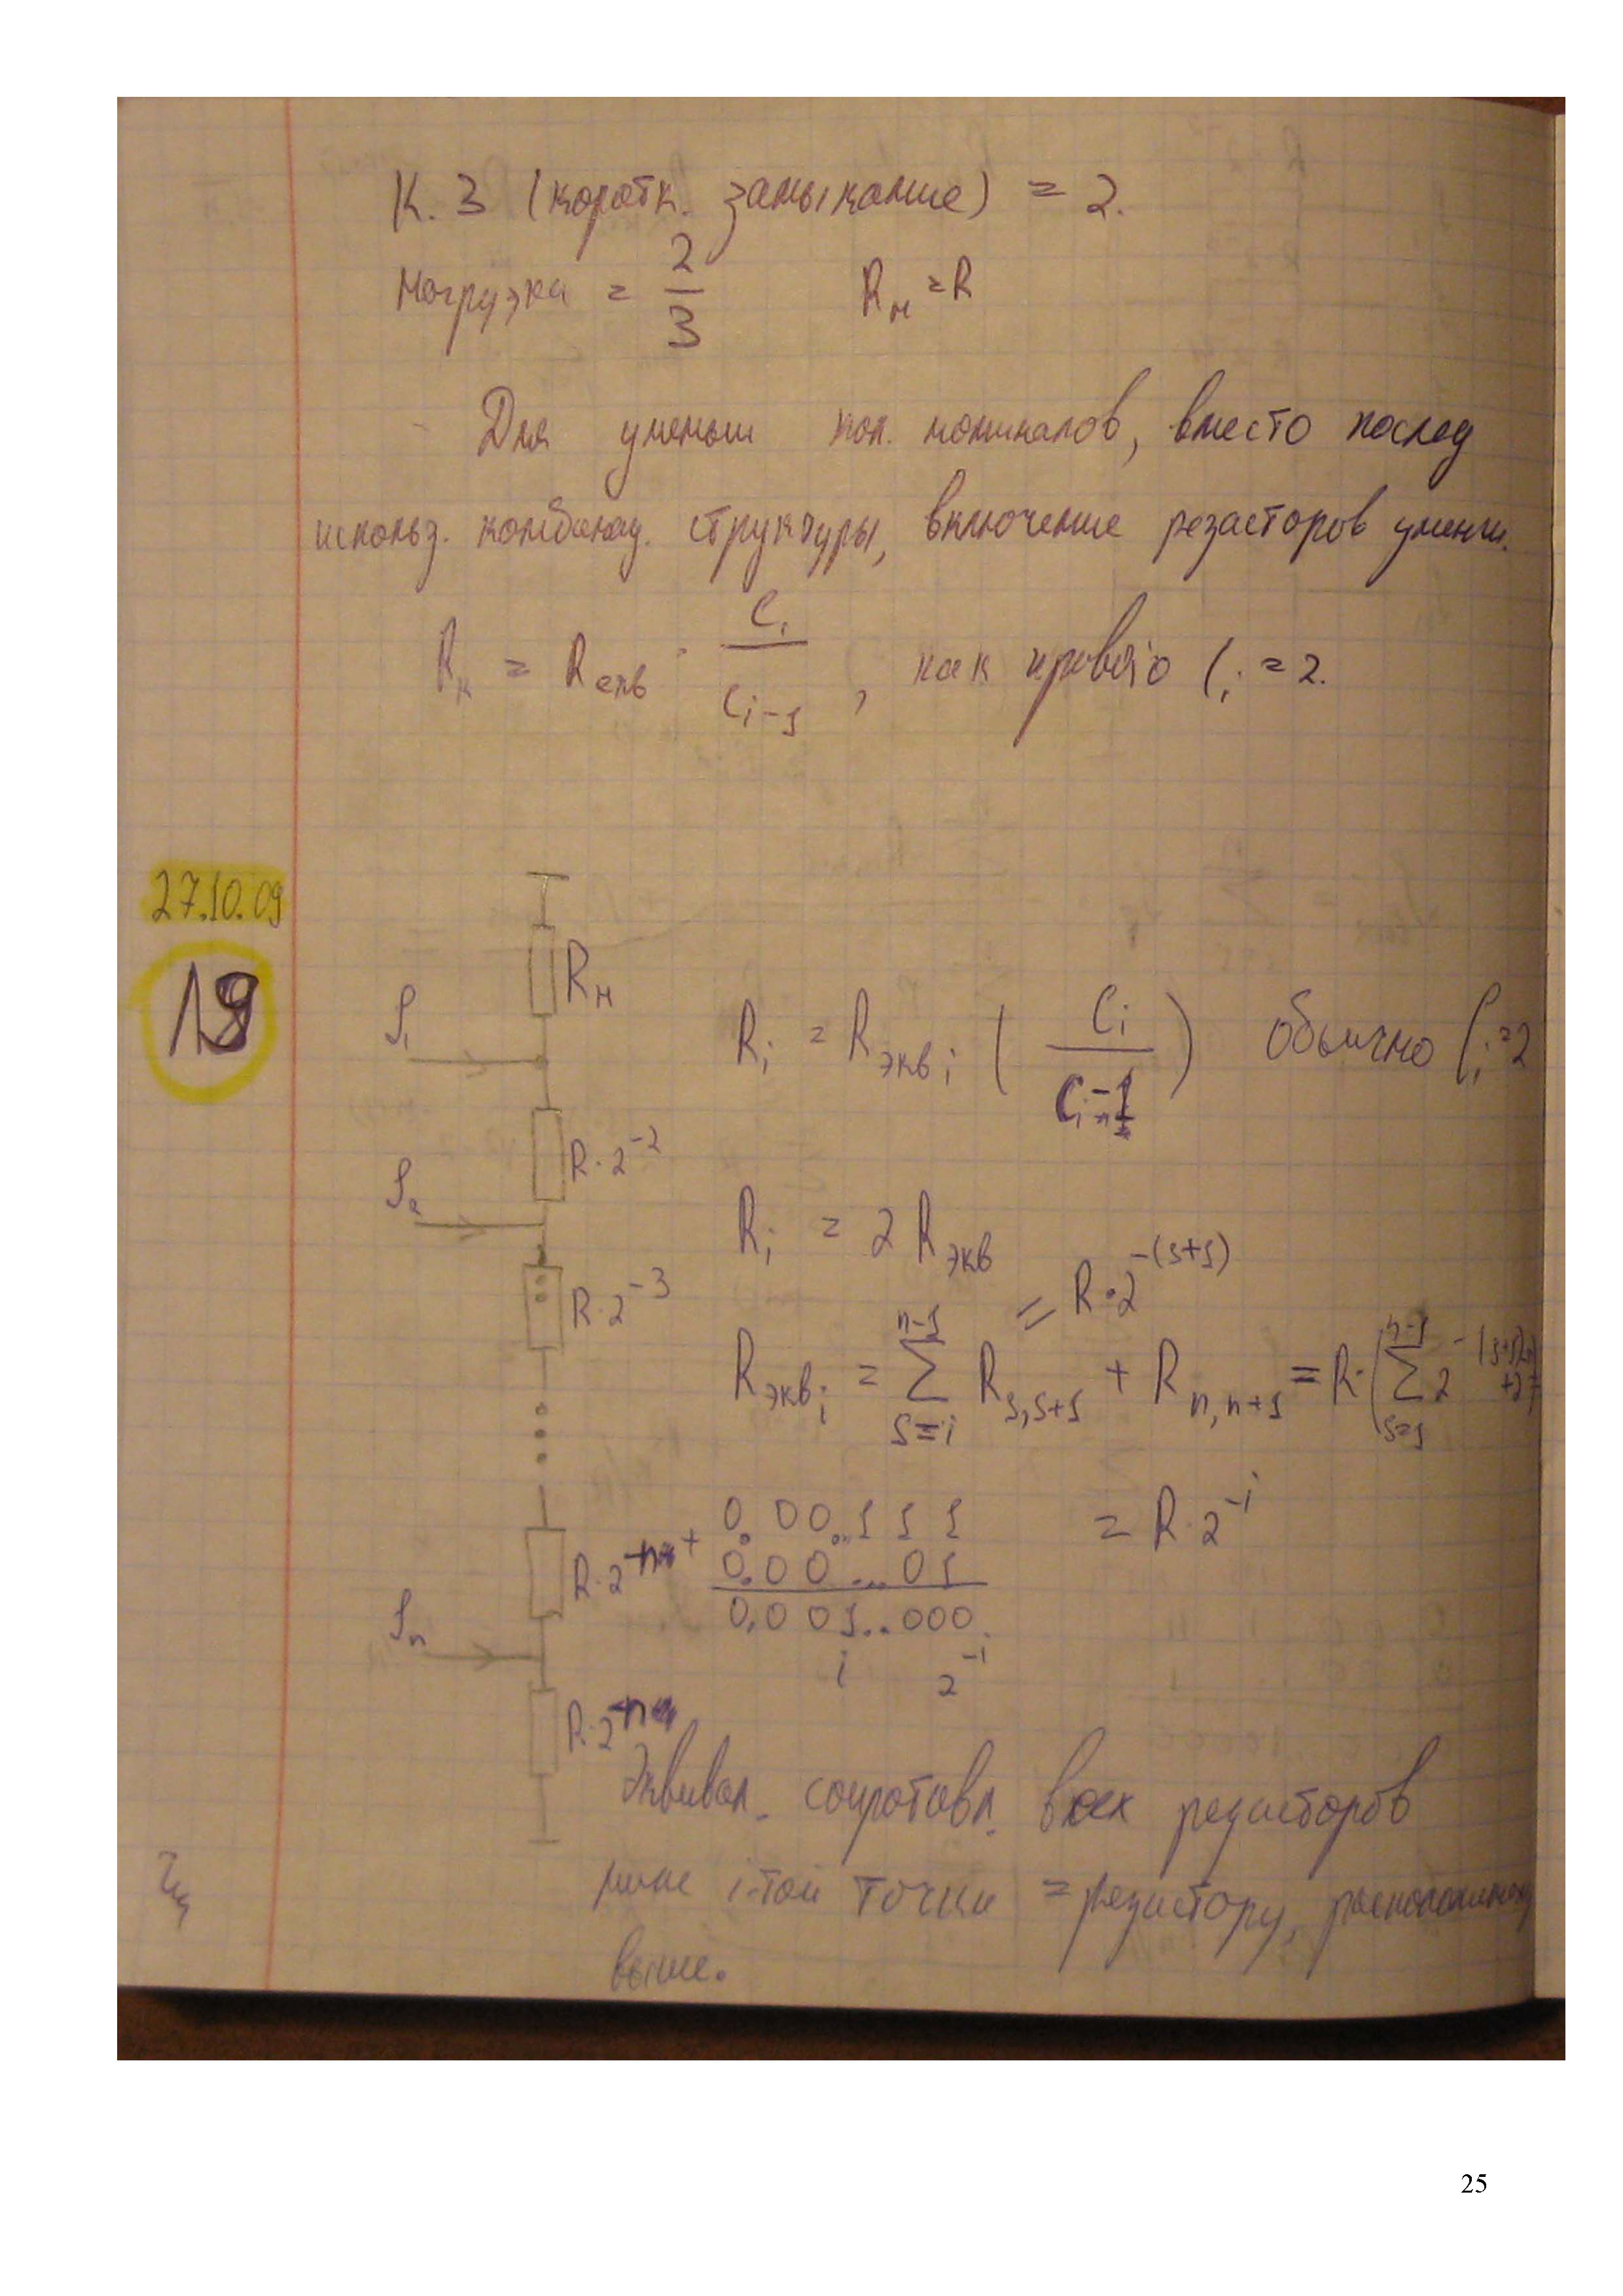 К.З (коротк. замыкание) = 2.
Нагрузка = 2/3 Rн = R
Для уменьш кол. номиналов, вместо послед
использ. комбинац. структуры, включение резисторов уменьш.
Rн = Rекв · Ci/Ci-1, как правило Ci = 2.
27.10.09
19
Rн
I1
Ri = Rэквi (Ci/Ci-1) обычно Ci = 2
R·2^-2
I2
Ri = 2 Rэкв
= R·2^-(s+1)
R·2^-3
Rэквi = Σ(s=i; n-1) Rs,s+1 + Rn,n+1 = R·(Σ(s=1; n-1) 2^-(s+1)
0.00..111 = R·2^-i
R·2^-n + 0.00...01
0,001..000.
In
i 2^-i
R·2^-n
Эквивал. сопротивл. всех резисторов
ниже i-той точки = резистору, расположенному
выше.
25